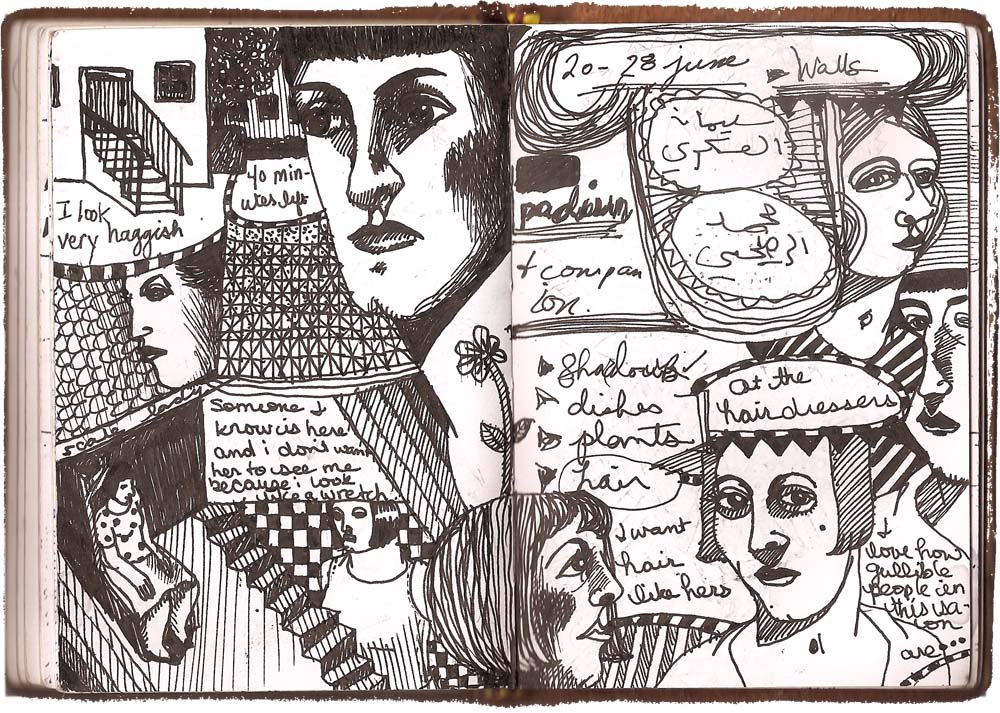 I look
very haggish
40 min-
utes left
Someone I
know is here
and i don't want
her to see me
because i look
like a wretch.
20 - 28 june
Walls
سليمان
العسكري
محمد
+ compan
ion.
shadows ✓
dishes
plants
hair
I want
hair
like hers
At the
hairdressers
I
love how
gullible
people in
this sa-
on
are...